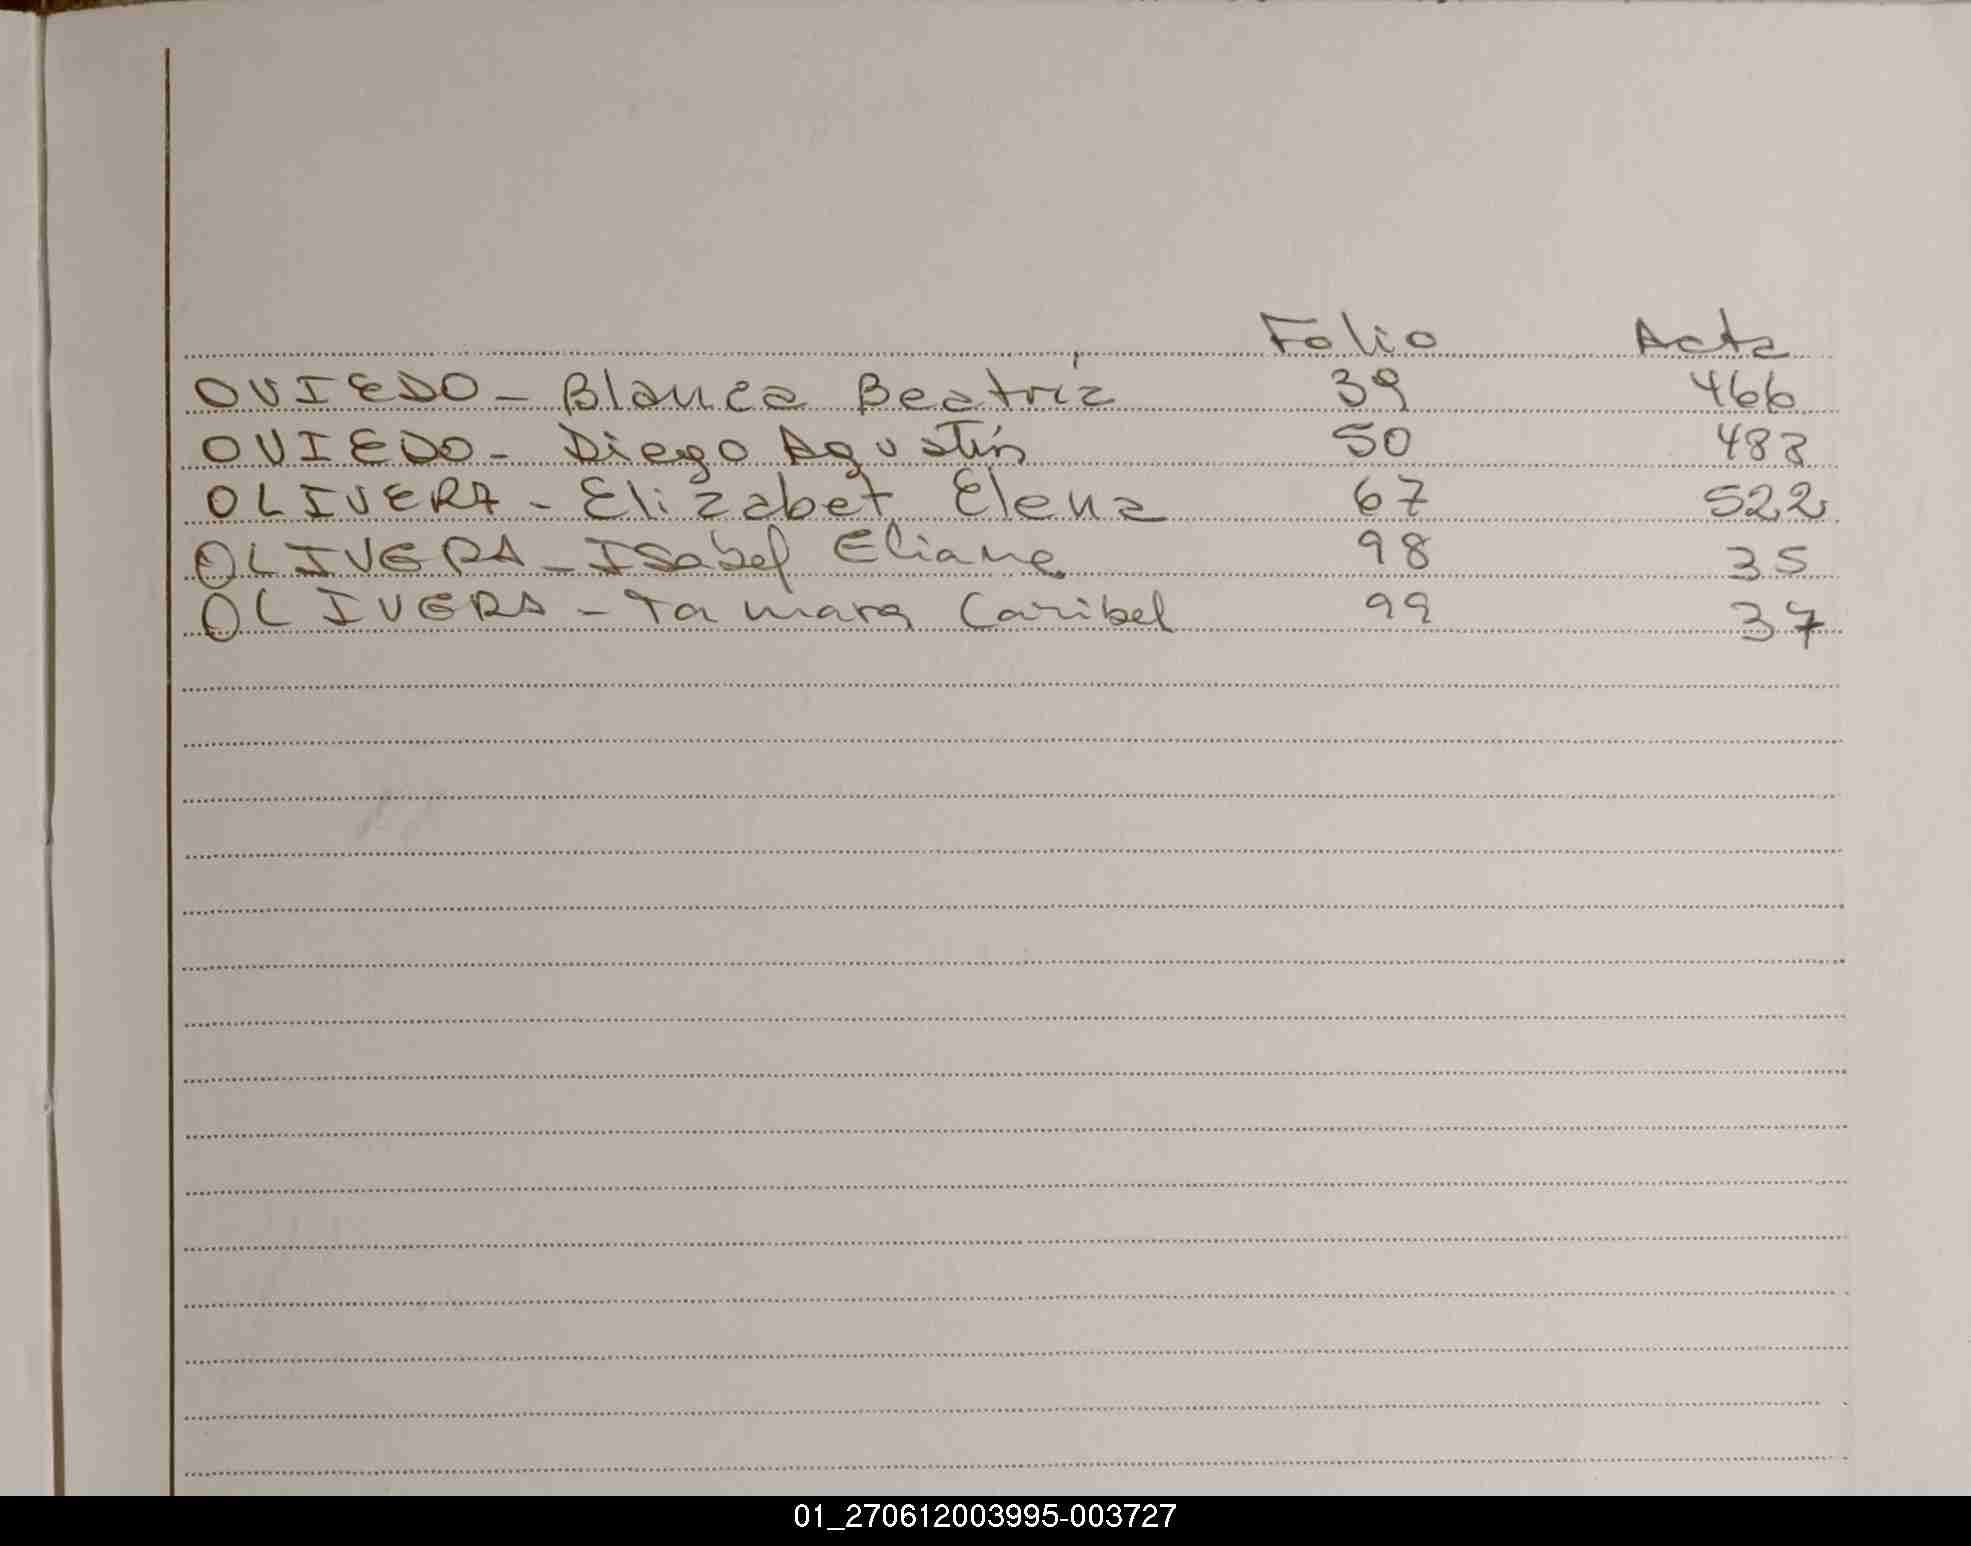 Folio Acta
OVIEDO - Blanca Beatriz 39 466
OVIEDO - Diego Agustín 50 488
OLIVERA - Elizabet Elena 67 522
OLIVERA - Isabel Eliana 98 35
OLIVERA - Tamara Caribel 99 37
01_270612003995-003727